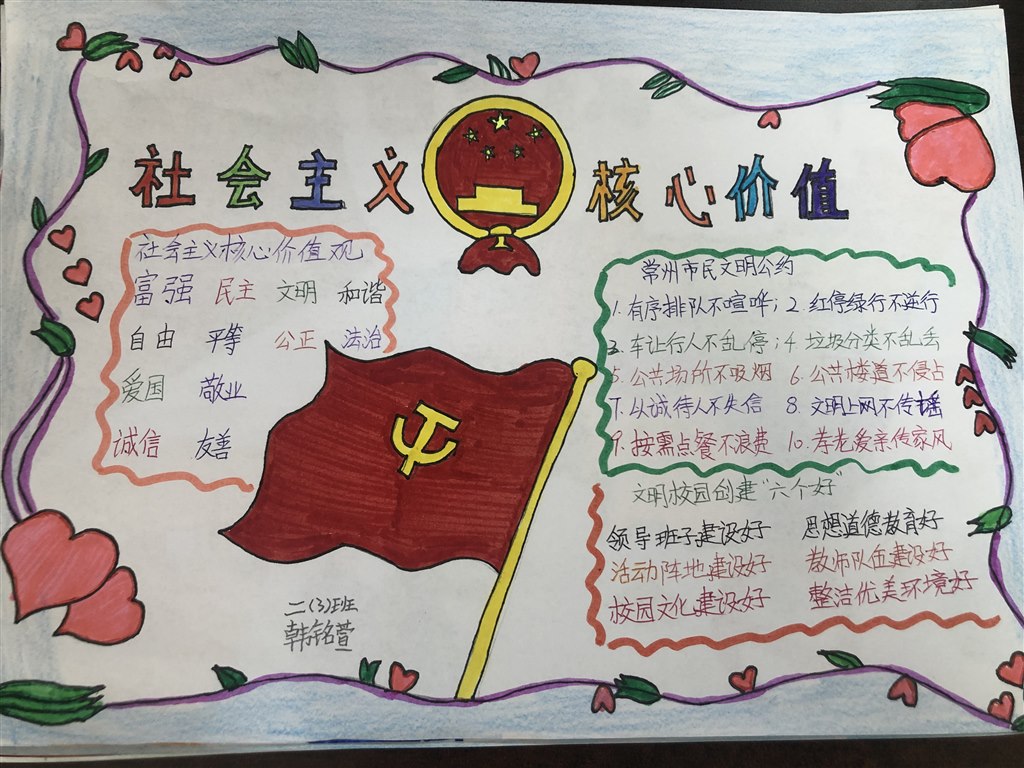 社会主义 核心价值
社会主义核心价值观
富强 民主 文明 和谐
自由 平等 公正 法治
爱国 敬业
诚信 友善
常州市民文明公约
1. 有序排队不喧哗；2. 红停绿行不逆行
3. 车让行人不乱停；4 垃圾分类不乱丢
5. 公共场所不吸烟 6. 公共楼道不侵占
7. 以诚待人不失信 8. 文明上网不传谣
9. 按需点餐不浪费 10. 孝老爱亲传家风
文明校园创建“六个好”
领导班子建设好 思想道德教育好
活动阵地建设好 教师队伍建设好
校园文化建设好 整洁优美环境好
二(3)班
韩铭萱